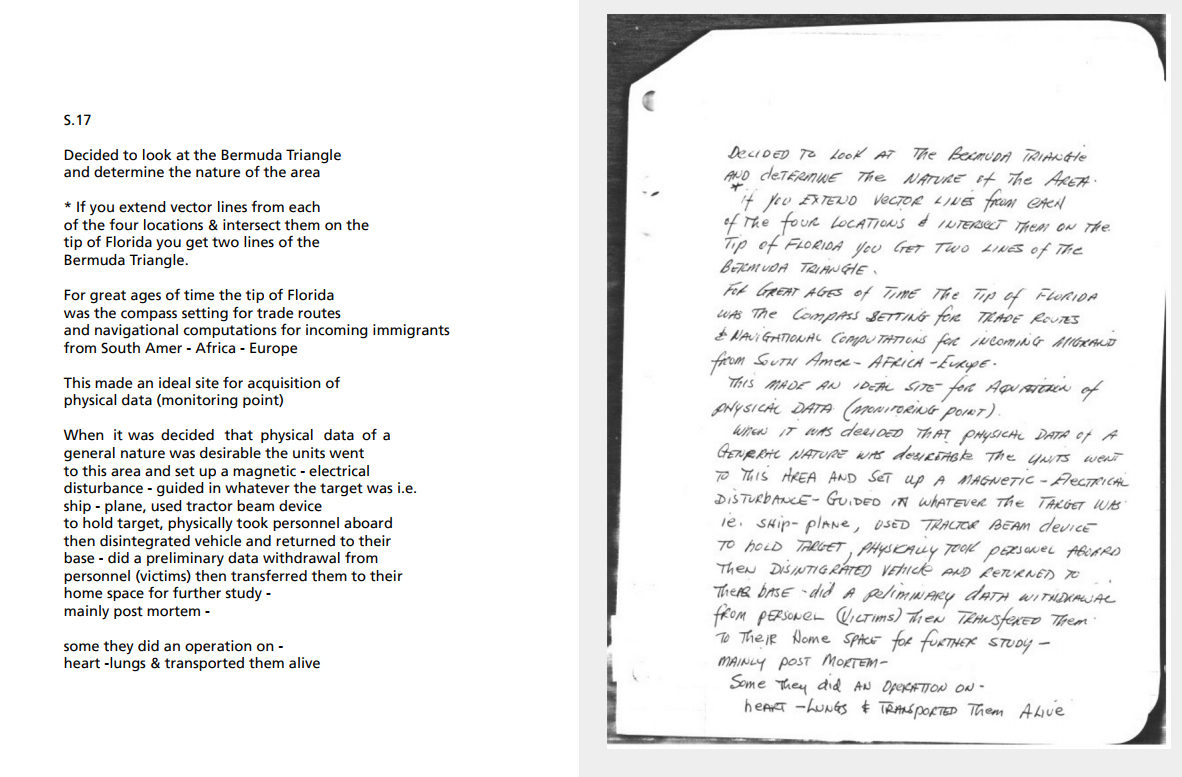 S.17
Decided to look at the Bermuda Triangle
and determine the nature of the area
* If you extend vector lines from each
of the four locations & intersect them on the
tip of Florida you get two lines of the
Bermuda Triangle.
For great ages of time the tip of Florida
was the compass setting for trade routes
and navigational computations for incoming immigrants
from South Amer - Africa - Europe
This made an ideal site for acquisition of
physical data (monitoring point)
When it was decided that physical data of a
general nature was desirable the units went
to this area and set up a magnetic - electrical
disturbance - guided in whatever the target was i.e.
ship - plane, used tractor beam device
to hold target, physically took personnel aboard
then disintegrated vehicle and returned to their
base - did a preliminary data withdrawal from
personnel (victims) then transferred them to their
home space for further study -
mainly post mortem -
some they did an operation on -
heart -lungs & transported them alive
DECIDED TO LOOK AT THE BERMUDA TRIANGLE
AND DETERMINE THE NATURE OF THE AREA.
* IF YOU EXTEND VECTOR LINES FROM EACH
OF THE FOUR LOCATIONS & INTERSECT THEM ON THE
TIP OF FLORIDA YOU GET TWO LINES OF THE
BERMUDA TRIANGLE.
FOR GREAT AGES OF TIME THE TIP OF FLORIDA
WAS THE COMPASS SETTING FOR TRADE ROUTES
& NAVIGATIONAL COMPUTATIONS FOR INCOMING
FROM SOUTH AMER - AFRICA - EUROPE.
THIS MADE AN IDEAL SITE FOR OF
PHYSICAL DATA (MONITORING POINT).
WHEN IT WAS DECIDED THAT PHYSICAL DATA OF A
GENERAL NATURE WAS THE UNITS WENT
TO THIS AREA AND SET UP A MAGNETIC - ELECTRICAL
DISTURBANCE - GUIDED IN WHATEVER THE TARGET WAS
ie. SHIP - PLANE, USED TRACTOR BEAM DEVICE
TO HOLD TARGET, PHYSICALLY TOOK PERSONEL ABOARD
THEN DISINTIGRATED VEHICLE AND RETURNED TO
THEIR BASE - DID A PELIMINARY DATA WITHDRAWAL
FROM PERSONEL (VICTIMS) THEN TRANSFERED THEM
TO THEIR HOME SPACE FOR FURTHER STUDY -
MAINLY POST MORTEM -
SOME THEY DID AN OPERATION ON -
HEART - LUNGS & TRANSPORTED THEM ALIVE